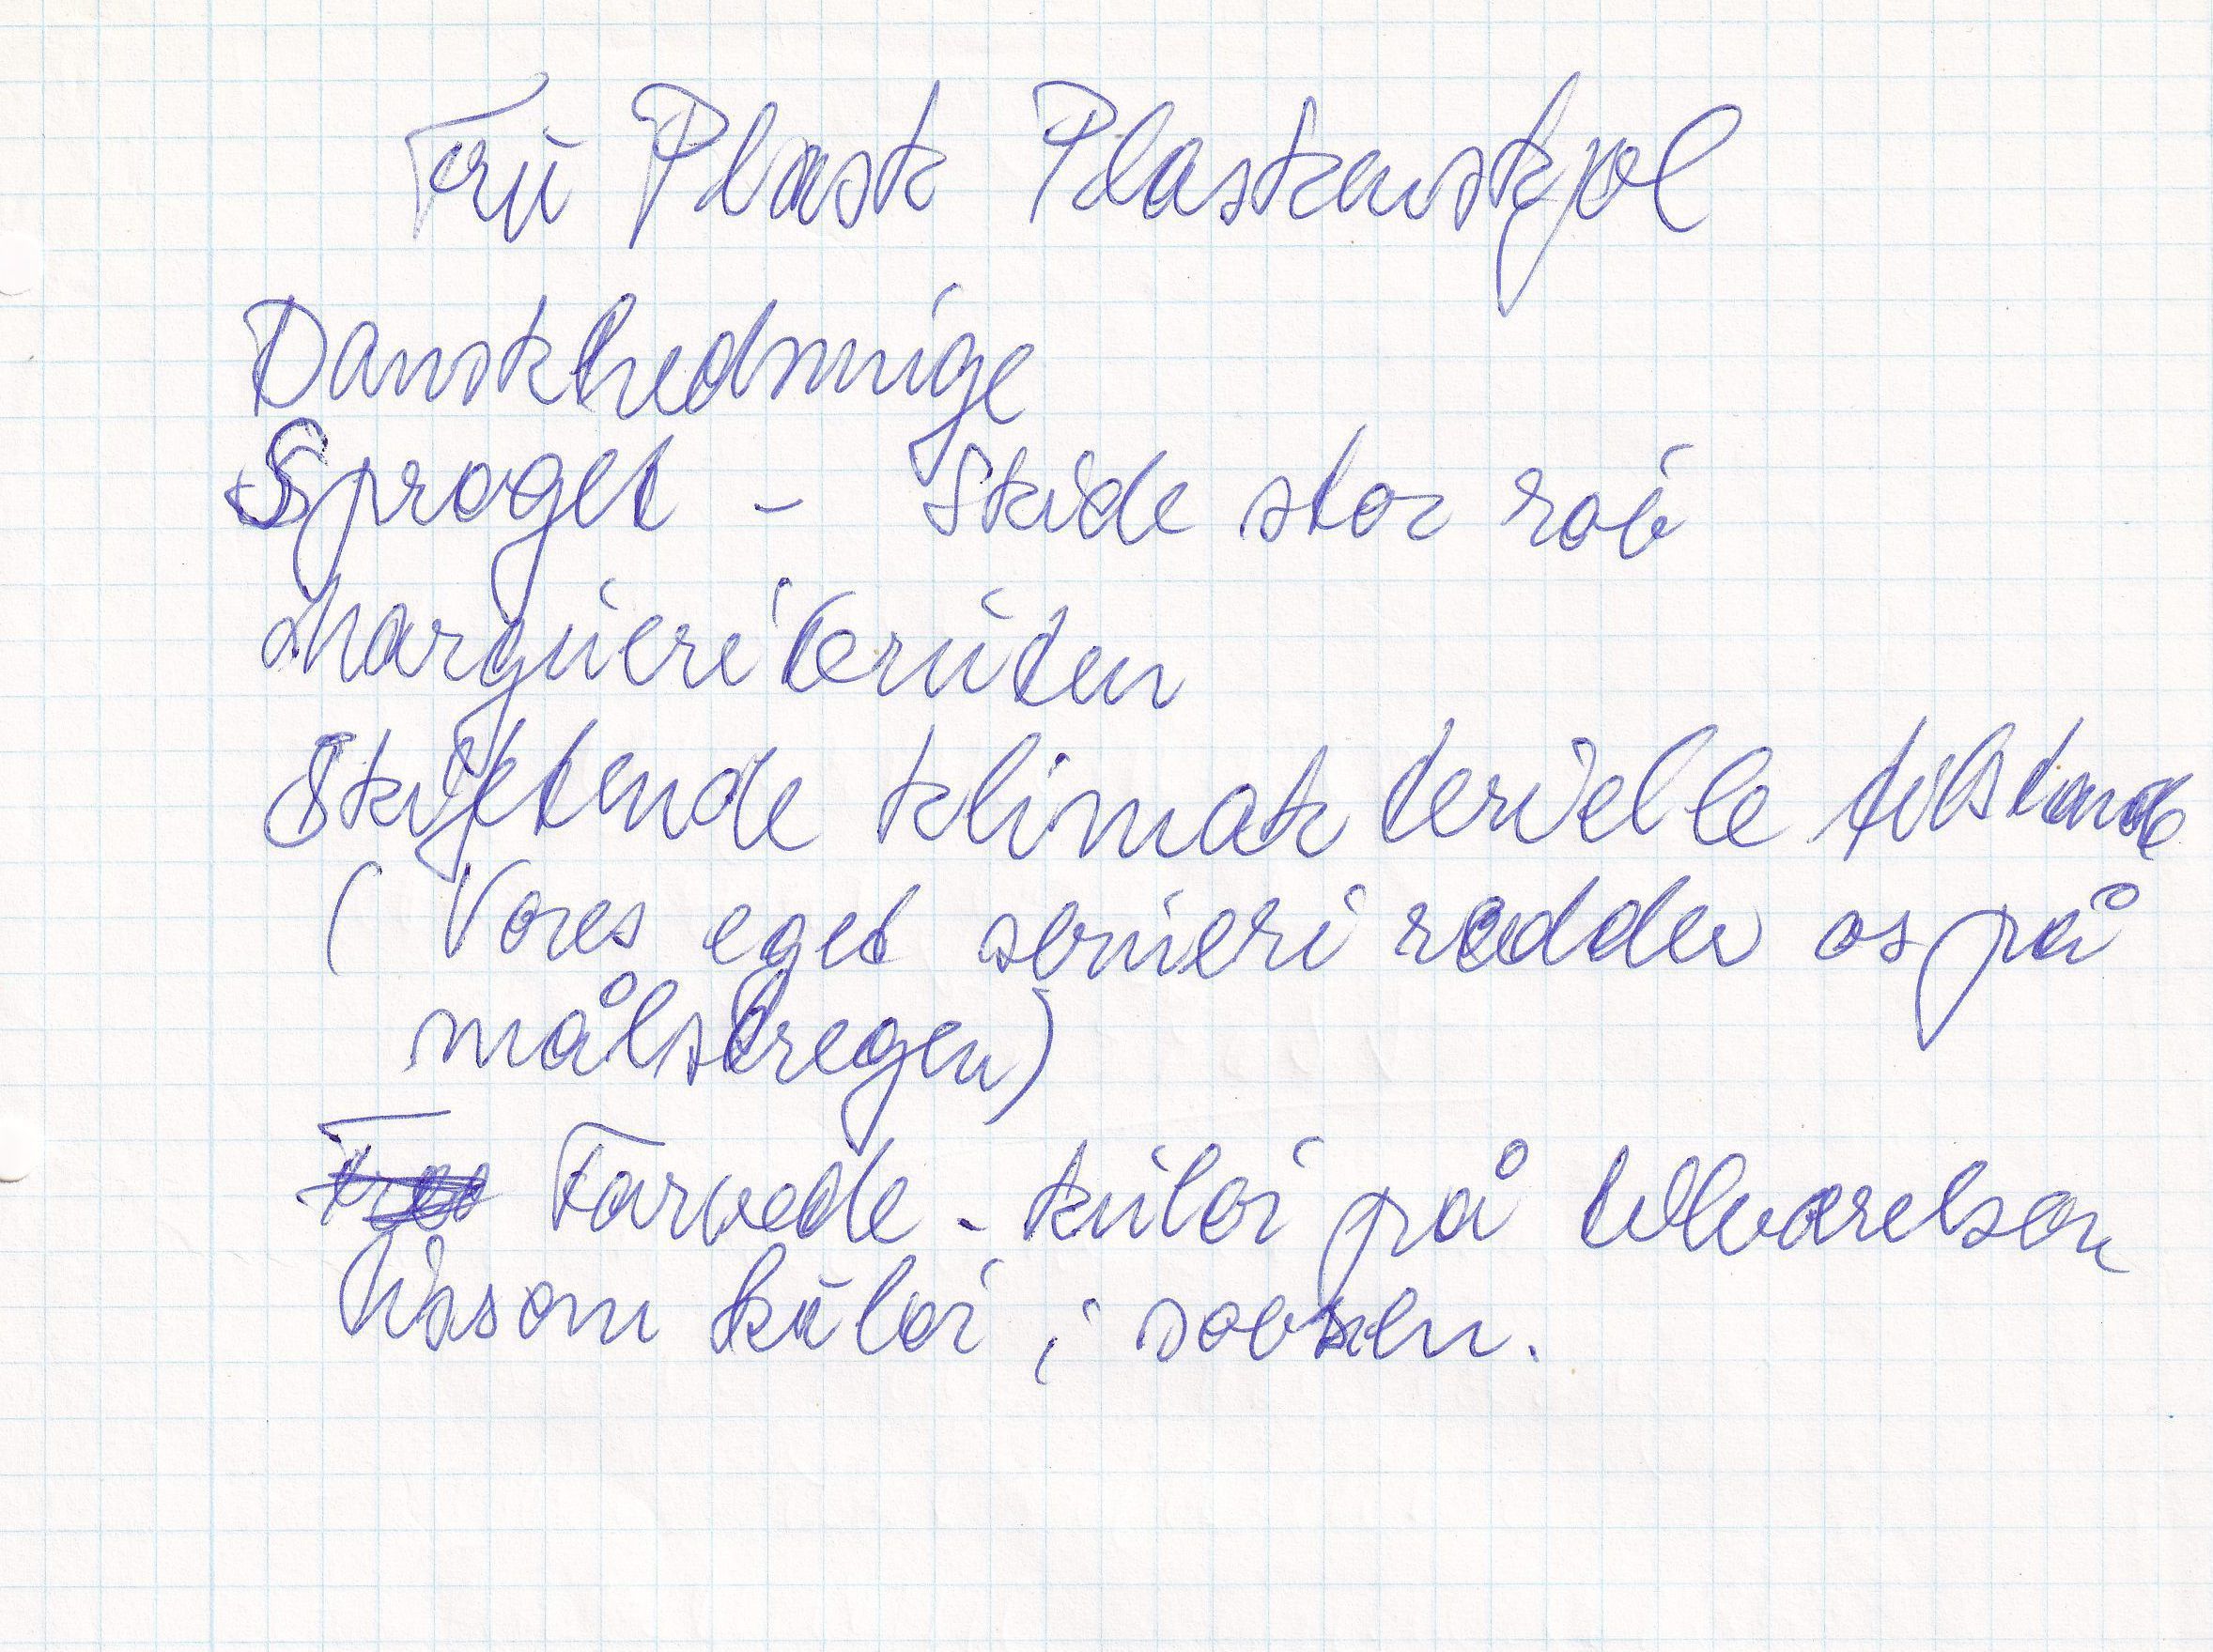 Fru Plask Plaskenskjol
Danskhedsmige
Sproget - Skide stor røv
Margueriteruten
Skiftende klimakterielle tilstande
(Vores eget svineri redder os på
målstregen)
Farvede - kulør på tilværelsen
liksom kulør i sovsen.